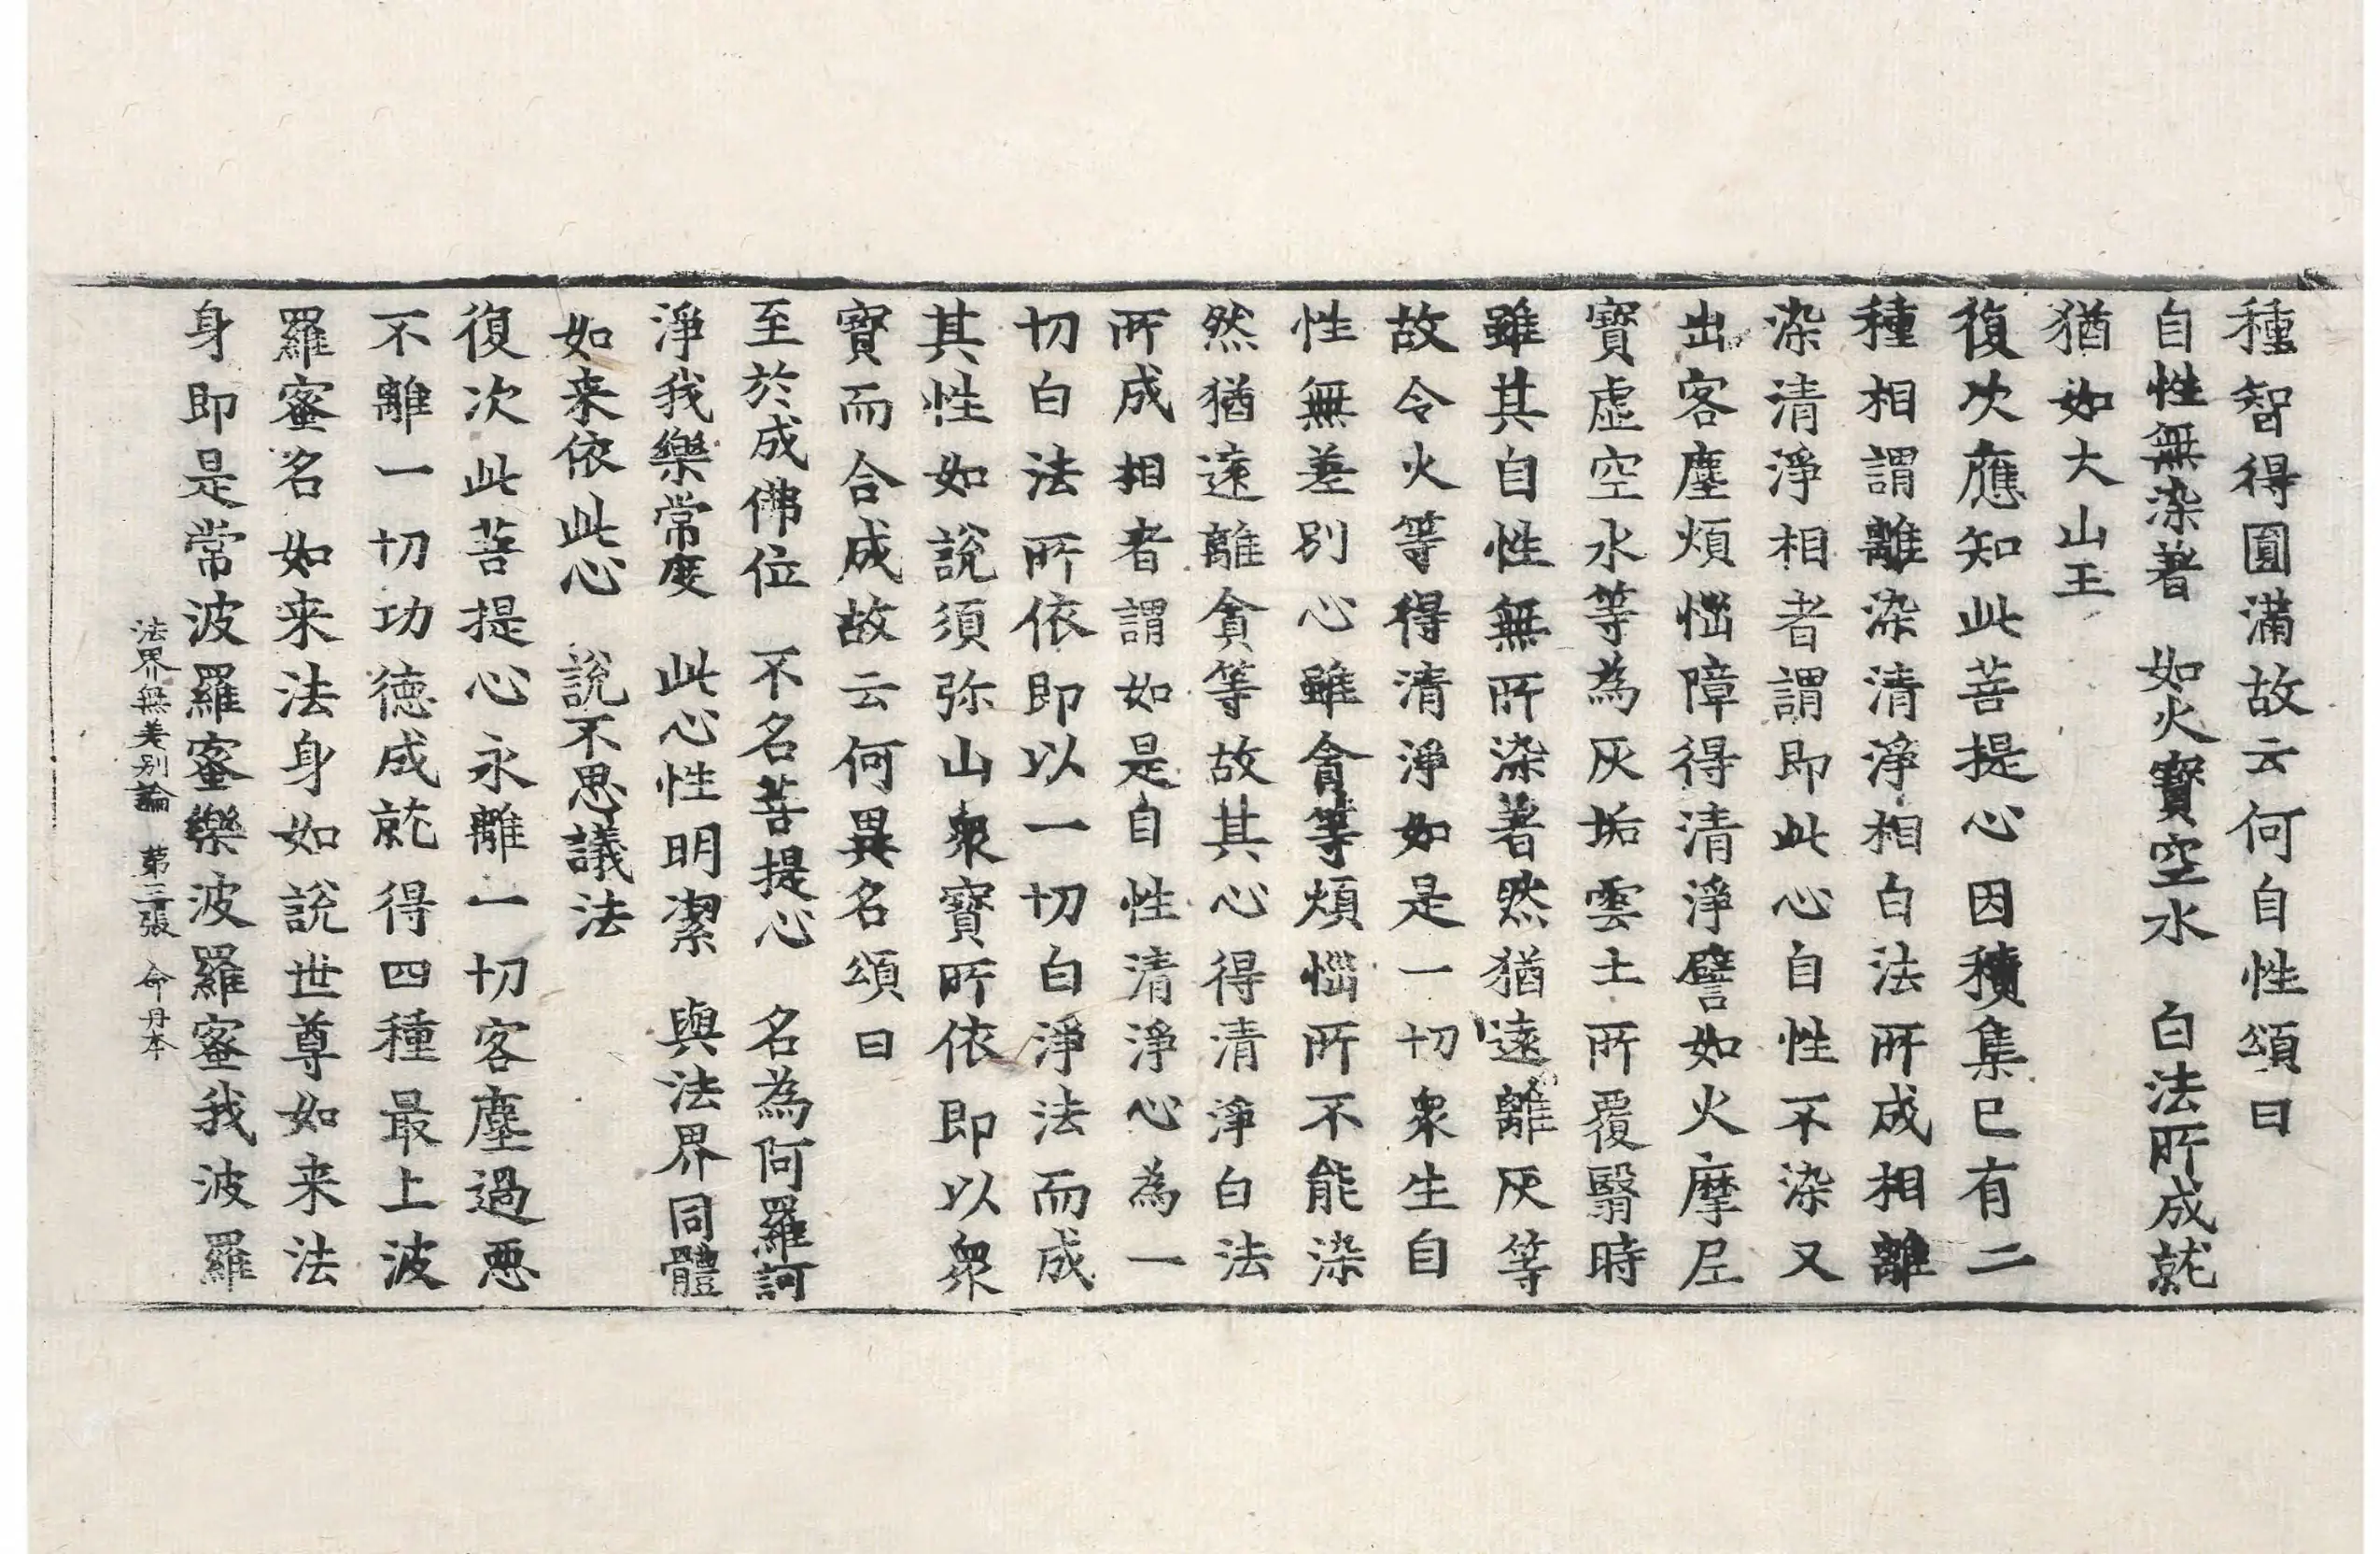 種智得圓滿故云何自性頌曰
自性無染著　如火寶空水　白法所成就
猶如大山王
復次應知此菩提心因積集已有二
種相謂離染清淨相白法所成相離
染清淨相者謂即此心自性不染又
出客塵煩惱障得清淨譬如火摩尼
寶虛空水等為灰垢雲土所覆翳時
雖其自性無所染著然猶遠離灰等
故令火等得清淨如是一切衆生自
性無差別心雖貪等煩惱所不能染
然猶遠離貪等故其心得清淨白法
所成相者謂如是自性清淨心為一
切白法所依即以一切白淨法而成
其性如說須弥山衆寶所依即以衆
寶而合成故云何異名頌曰
至於成佛位　不名菩提心　名為阿羅訶
淨我樂常度　此心性明潔　與法界同體
如来依此心　說不思議法
復次此菩提心永離一切客塵過惡
不離一切功德成就得四種最上波
羅蜜名如来法身如說世尊如来法
身即是常波羅蜜樂波羅蜜我波羅
法界無差別論　第三張　命　丹本